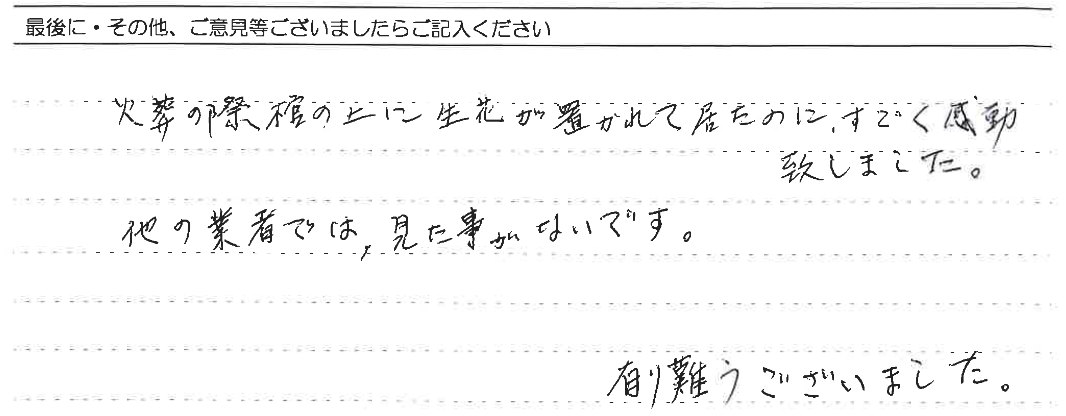 最後に・その他、ご意見等ございましたらご記入ください
火葬の際棺の上に生花が置かれて居たのに、すごく感動
致しました。
他の業者では、見た事がないです。
有り難うございました。